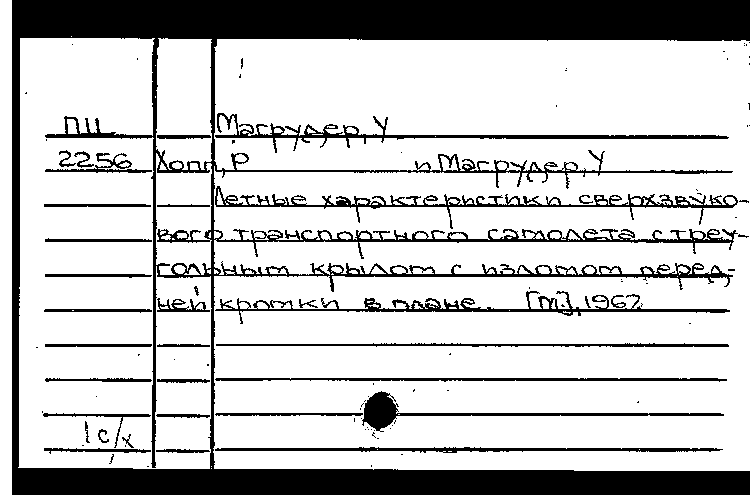 ПЦ Магрудер, У
2256 Хопп, Р и Магрудер, У
Летные характеристики сверхзвуко-
вого транспортного самолета с треу-
гольным крылом с изломом перед-
ней кромки в плане. [М], 1967
1 с/х